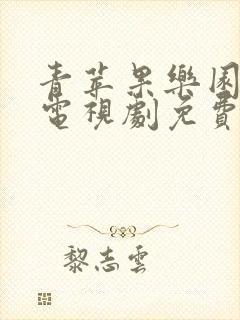 青苹果樂園
電視劇免費
黎志雲